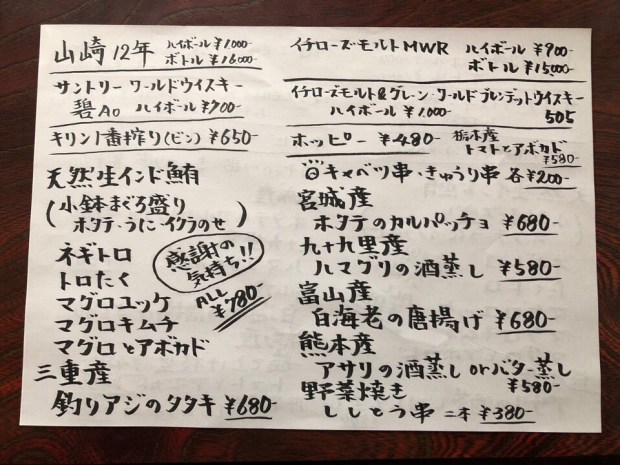 山崎12年 ハイボール ¥1000-
ボトル ¥16000-
サントリー ワールドウイスキー
碧Ao ハイボール ¥700-
キリン1番搾り(ビン) ¥650-
天然生インド鮪
(小鉢まぐろ盛り
ホタテ・うに・イクラのせ)
ネギトロ
トロたく
マグロユッケ
マグロキムチ
マグロとアボカド
感謝の
気持ち!!
ALL
¥780-
三重産
釣りアジのタタキ ¥680-
イチローズモルトMWR ハイボール ¥900-
ボトル ¥15000-
イチローズモルト&グレーン・ワールドブレンデットウイスキー
505
ハイボール ¥1,000-
ホッピー ¥480-
栃木産
トマトとアボカド
¥580-
キャベツ串・きゅうり串 各¥200-
宮城産
ホタテのカルパッチョ ¥680-
九十九里産
ハマグリの酒蒸し ¥580-
富山産
白海老の唐揚げ ¥680-
熊本産
アサリの酒蒸しorバター蒸し
¥580-
野菜焼き
ししとう串 二本 ¥380-